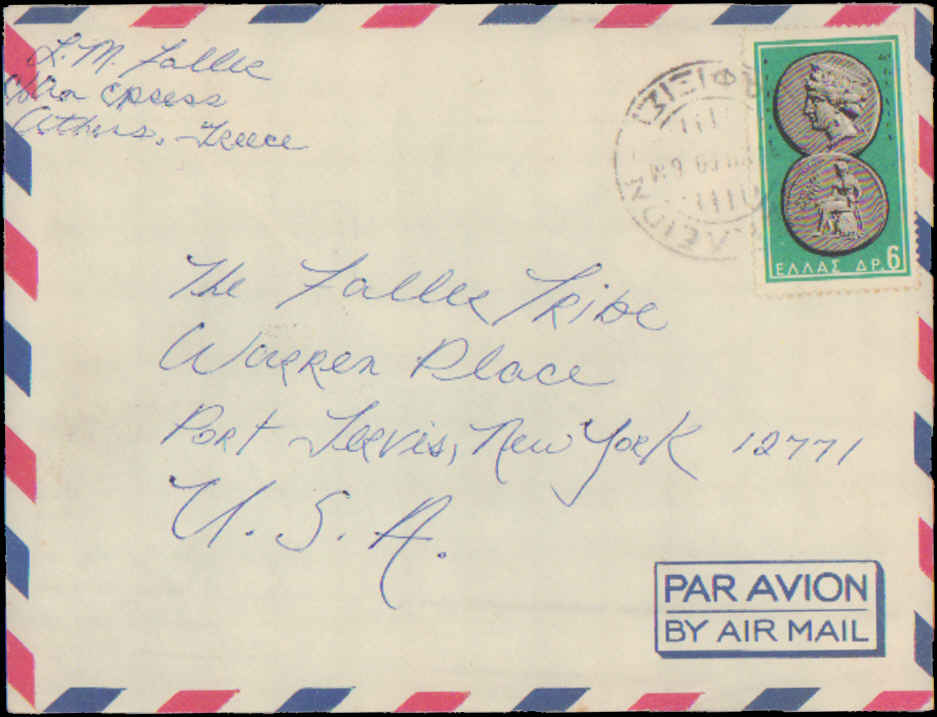 L. M. Fallee
Athens, Greece
ΕΛΛΑΣ ΔΡ. 6
The Fallee Tribe
Warren Place
Port Jervis, New York 12771
U. S. A.
PAR AVION
BY AIR MAIL